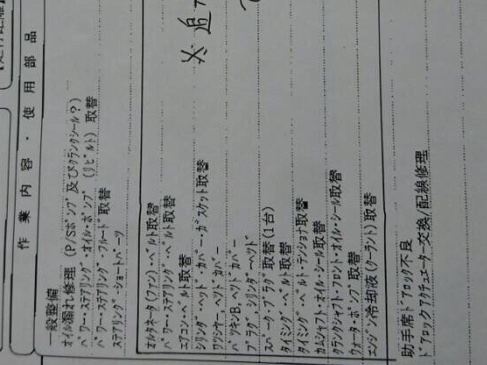 作業内容・使用部品
一般整備
オイル漏れ修理 (P/Sポンプ 及びクランクシール?)
パワーステアリング・オイル・ポンプ (リビルト) 取替
パワー・ステアリング・フルード 取替
ステアリング・ショートパーツ
オルタネータ(ファン)・ベルト取替
パワー・ステアリング・ベルト取替
エアコン・ベルト取替
シリンダ・ヘッド・カバー・ガスケット取替
ワッシャ, ヘッド・カバー
パッキン, ヘッド・カバー
プラグ, シリンダ・ヘッド
スパーク・プラグ 取替 (1台)
タイミング・ベルト取替
タイミング・ベルト・テンショナ取替
カムシャフト・オイル・シール取替
クランクシャフト・フロント・オイル・シール取替
ウォータ・ポンプ取替
エンジン冷却液 (クーラント) 取替
助手席ドアロック不良
ドアロックアクチュエーター交換/配線修理
※追